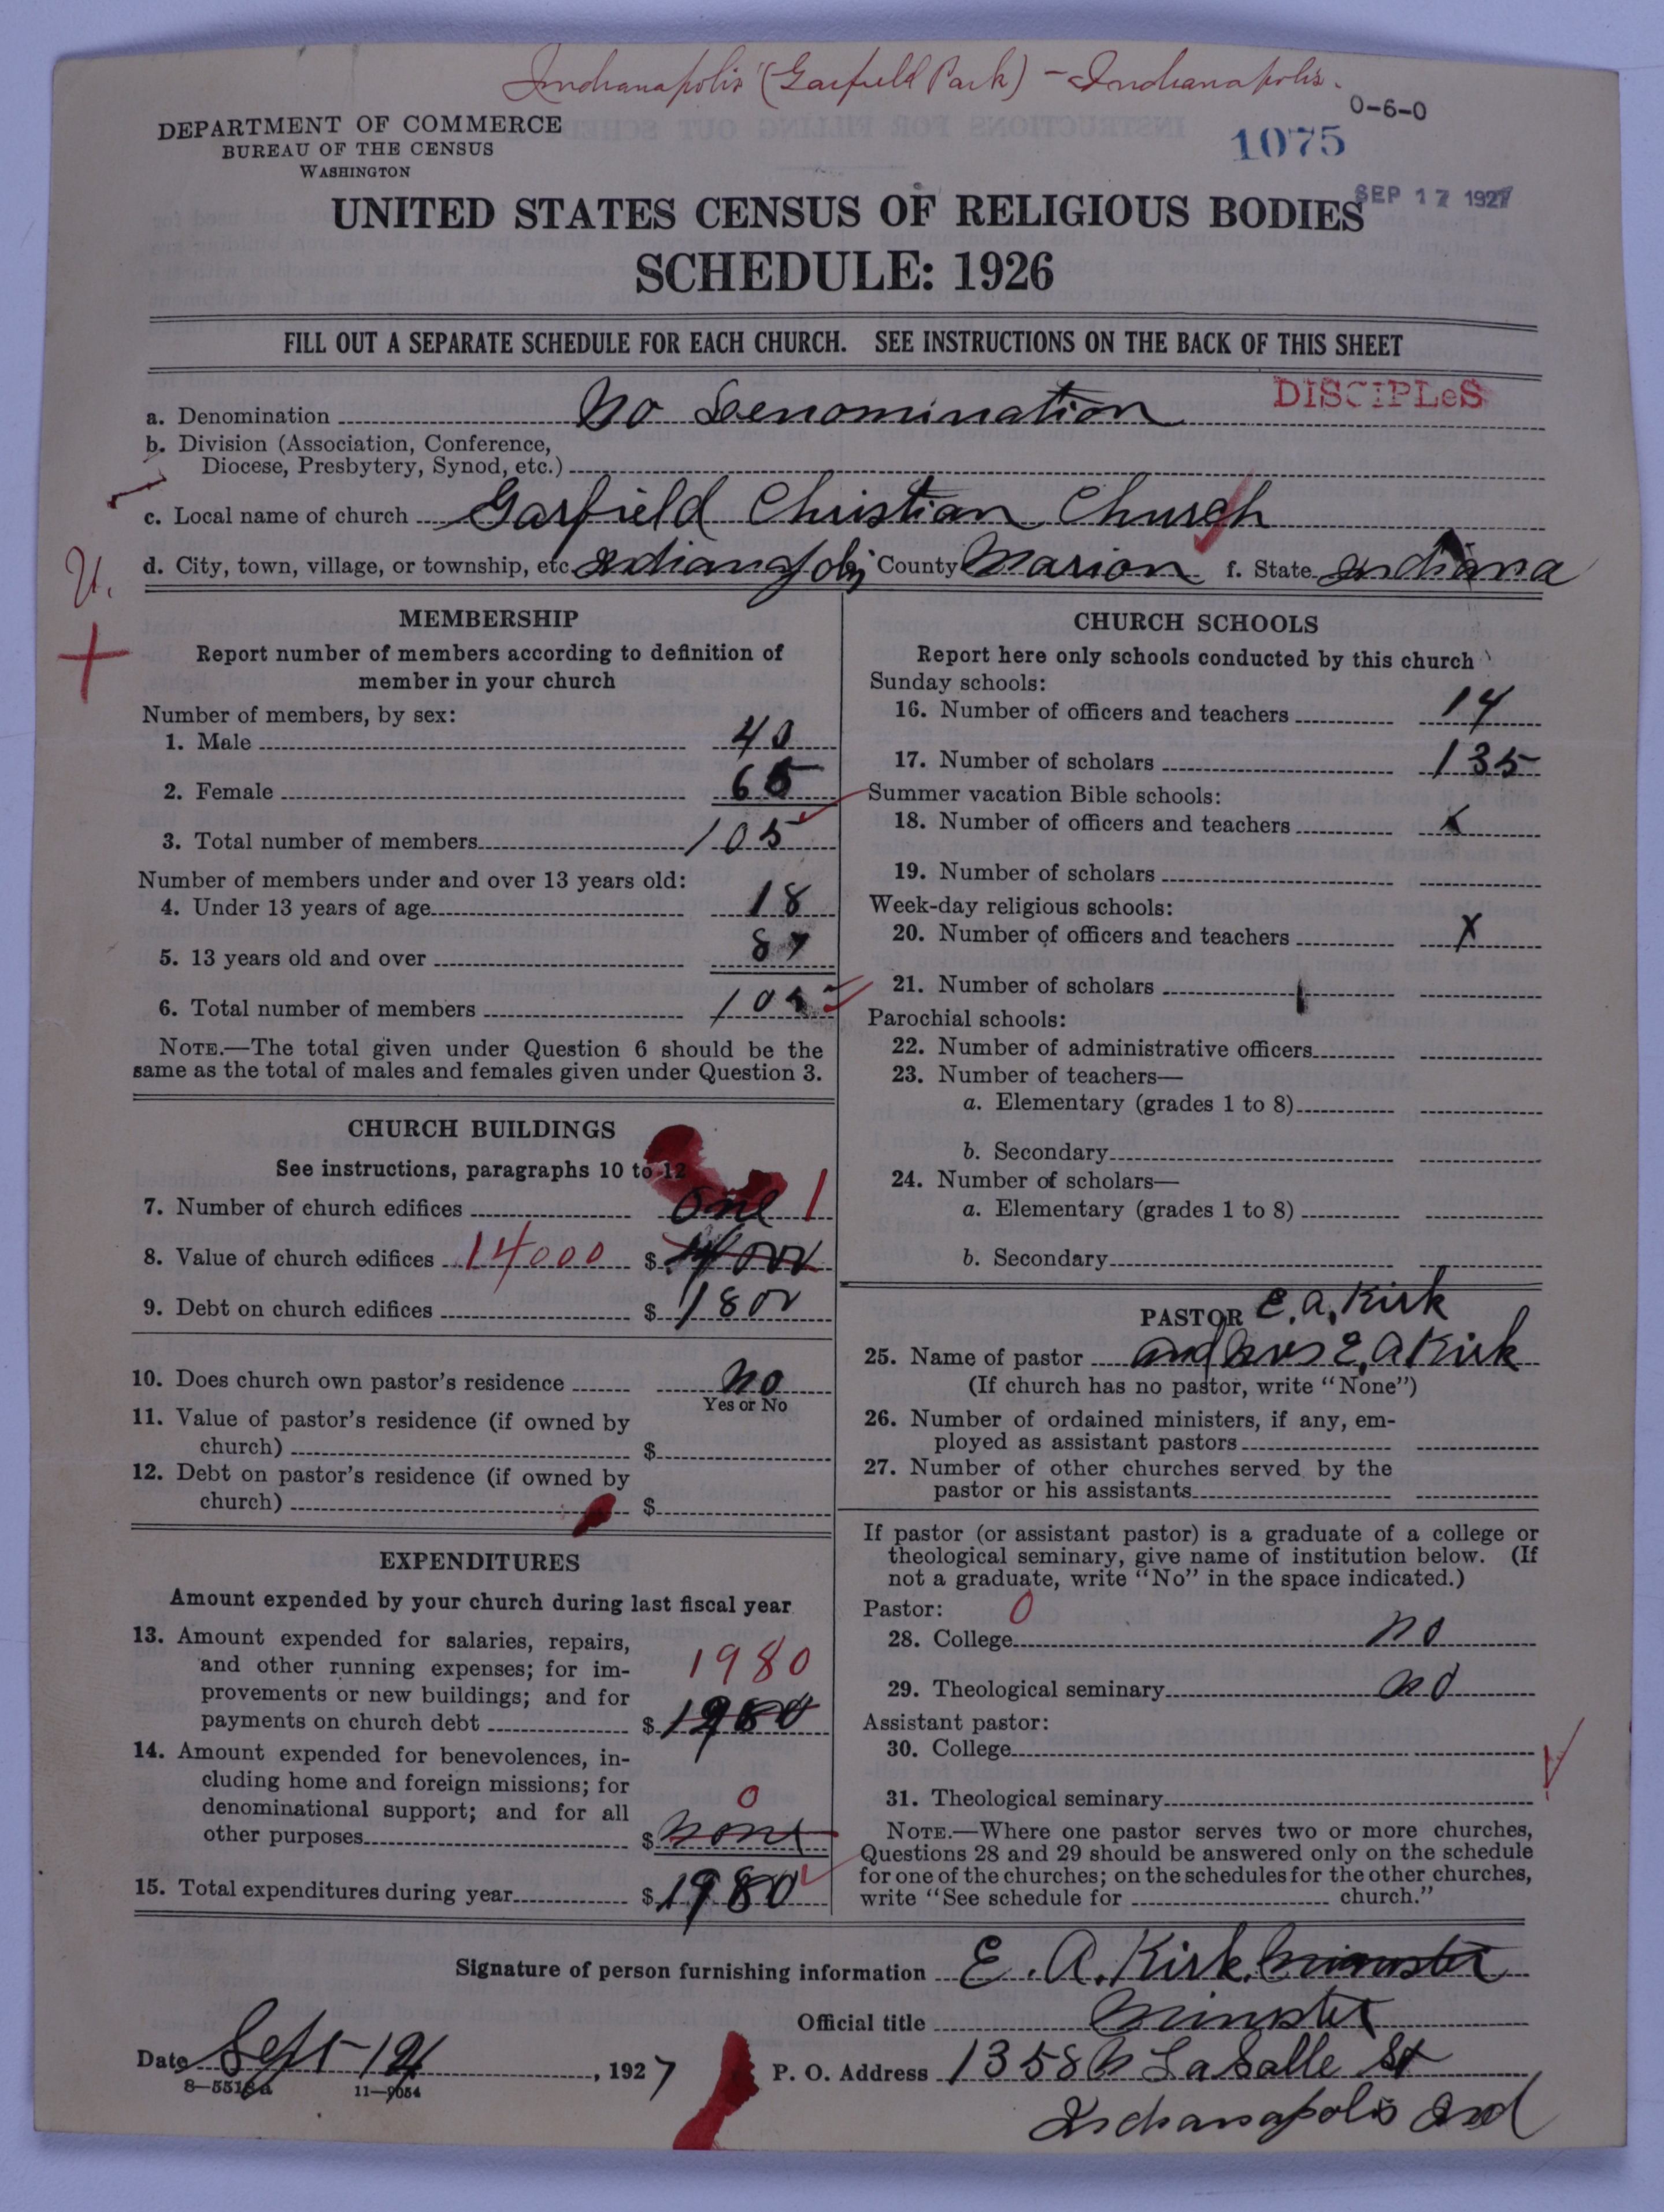 Indianapolis (Garfield Park) - Indianapolis.
0-6-0
DEPARTMENT OF COMMERCE
BUREAU OF THE CENSUS
WASHINGTON
1075
SEP 17 1927
UNITED STATES CENSUS OF RELIGIOUS BODIES
SCHEDULE: 1926
FILL OUT A SEPARATE SCHEDULE FOR EACH CHURCH. SEE INSTRUCTIONS ON THE BACK OF THIS SHEET
DISCIPLeS
a. Denomination No Denomination
b. Division (Association, Conference,
Diocese, Presbytery, Synod, etc.)
c. Local name of church Garfield Christian Church
d. City, town, village, or township, etc. Indianapolis County Marion f. State Indiana
MEMBERSHIP
Report number of members according to definition of
member in your church
Number of members, by sex:
1. Male 40
2. Female 65
3. Total number of members 105
Number of members under and over 13 years old:
4. Under 13 years of age 18
5. 13 years old and over 87
6. Total number of members 105
NOTE.—The total given under Question 6 should be the
same as the total of males and females given under Question 3.
CHURCH BUILDINGS
See instructions, paragraphs 10 to 12
7. Number of church edifices One 1
8. Value of church edifices 14000 $ 14000
9. Debt on church edifices $ 1800
10. Does church own pastor's residence No
Yes or No
11. Value of pastor's residence (if owned by
church) $
12. Debt on pastor's residence (if owned by
church) $
EXPENDITURES
Amount expended by your church during last fiscal year
13. Amount expended for salaries, repairs,
and other running expenses; for im-
provements or new buildings; and for
payments on church debt $ 1980
1980
14. Amount expended for benevolences, in-
cluding home and foreign missions; for
denominational support; and for all
other purposes $ none
0
15. Total expenditures during year $ 1980
CHURCH SCHOOLS
Report here only schools conducted by this church
Sunday schools:
16. Number of officers and teachers 14
17. Number of scholars 135
Summer vacation Bible schools:
18. Number of officers and teachers x
19. Number of scholars
Week-day religious schools:
20. Number of officers and teachers x
21. Number of scholars
Parochial schools:
22. Number of administrative officers
23. Number of teachers—
a. Elementary (grades 1 to 8)
b. Secondary
24. Number of scholars—
a. Elementary (grades 1 to 8)
b. Secondary
PASTOR E. A. Kirk
25. Name of pastor and Mrs E. A Kirk
(If church has no pastor, write "None")
26. Number of ordained ministers, if any, em-
ployed as assistant pastors
27. Number of other churches served by the
pastor or his assistants
If pastor (or assistant pastor) is a graduate of a college or
theological seminary, give name of institution below. (If
not a graduate, write "No" in the space indicated.)
Pastor: 0
28. College no
29. Theological seminary no
Assistant pastor:
30. College
31. Theological seminary
NOTE.—Where one pastor serves two or more churches,
Questions 28 and 29 should be answered only on the schedule
for one of the churches; on the schedules for the other churches,
write "See schedule for church."
Signature of person furnishing information E. A. Kirk. Minister
Official title Minister
Date Sept 12, 1927
P. O. Address 1358 N LaSalle St
8—5513a 11—9054
Indianapolis Ind